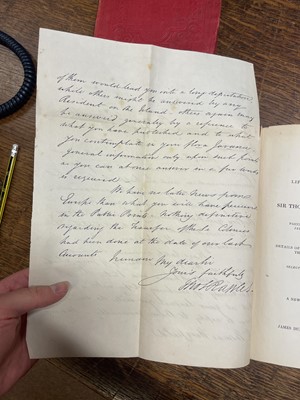 of them would lead you into a long dissertation
while others might be answered by any
Resident on the Island. Others again may
be answered generally by a reference to
what you have published and to what
you contemplate in your Flora Javana
general information only upon such points
as you can above answer in a few words
is required.
We have no later News from
Europe than what you will have perceived
in the Public Prints. Nothing definitive
regarding the transfer of these Colonies
had been done at the date of our last
Accounts. Remain My dear Sir
Yours faithfully
Thos Raffles
LIF
SIR THO
JAMES DU